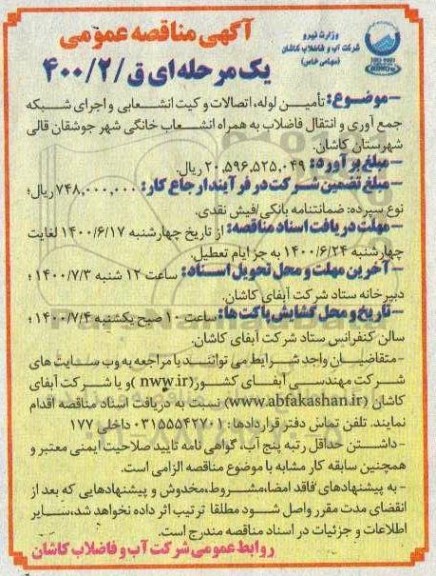 وزارت نیرو
شرکت آب و فاضلاب کاشان
(سهامی خاص)
آگهی مناقصه عمومی
یک مرحله ای ق/۴۰۰/۲
-موضوع: تأمین لوله، اتصالات و کیت انشعابی و اجرای شبکه
جمع آوری و انتقال فاضلاب به همراه انشعاب خانگی شهر جوشقان قالی
شهرستان کاشان.
-مبلغ برآورد: ۲۰،۵۹۶،۵۲۵،۰۴۹ ریال.
-مبلغ تضمین شرکت در فرآیند ارجاع کار: ۷۴۸،۰۰۰،۰۰۰ ریال؛
نوع سپرده: ضمانتنامه بانکی/فیش نقدی.
-مهلت دریافت اسناد مناقصه: از تاریخ چهارشنبه ۱۴۰۰/۶/۱۷ لغایت
چهارشنبه ۱۴۰۰/۶/۲۴ به جز ایام تعطیل.
-آخرین مهلت و محل تحویل اسناد: ساعت ۱۲ شنبه ۱۴۰۰/۷/۳؛
دبیرخانه ستاد شرکت آبفای کاشان.
-تاریخ و محل گشایش پاکت ها: ساعت ۱۰ صبح یکشنبه ۱۴۰۰/۷/۴؛
سالن کنفرانس ستاد شرکت آبفای کاشان.
-متقاضیان واجد شرایط می توانند با مراجعه به وب سایت های
شرکت مهندسی آبفای کشور(nww.ir )و یا شرکت آبفای
کاشان (www.abfakashan.ir) نسبت به دریافت اسناد مناقصه اقدام
نمایند. تلفن تماس دفتر قراردادها: ۰۳۱۵۵۵۴۷۷۰۱ داخلی ۱۷۷
-داشتن حداقل رتبه پنج آب، گواهی نامه تایید صلاحیت ایمنی معتبر و
همچنین سابقه کار مشابه با موضوع مناقصه الزامی است.
-به پیشنهادهای فاقد امضا،مشروط،مخدوش و پیشنهادهایی که بعد از
انقضای مدت مقرر واصل شود مطلقا ترتیب اثر داده نخواهد شد،سایر
اطلاعات و جزئیات در اسناد مناقصه مندرج است.
روابط عمومی شرکت آب و فاضلاب کاشان